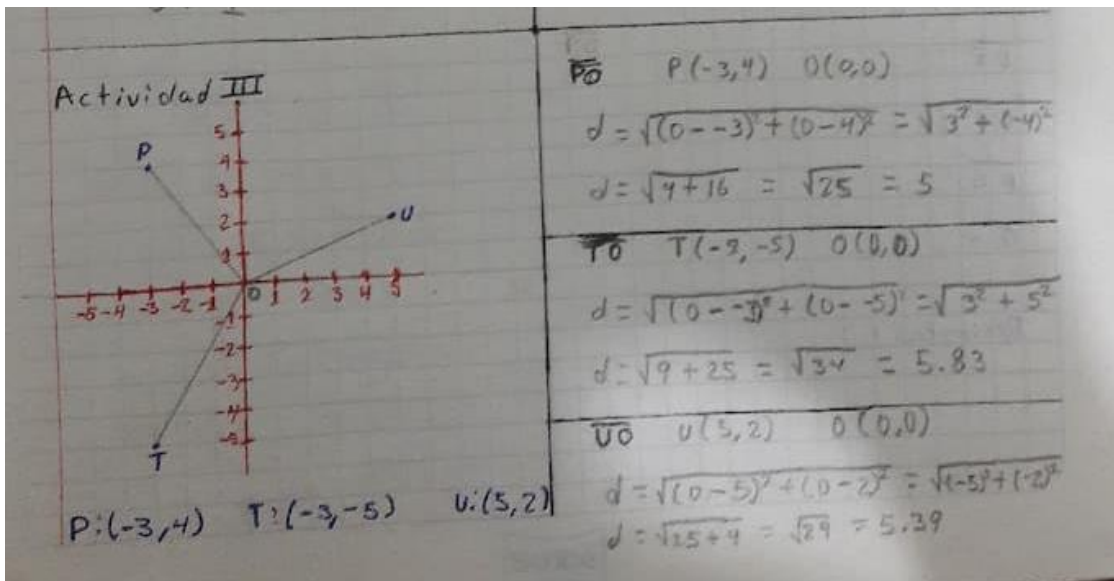 Actividad III
P
U
T
O
5
4
3
2
1
-5 -4 -3 -2 -1 0 1 2 3 4 5
-1
-2
-3
-4
-5
P:(-3,4) T:(-3,-5) U:(5,2)
PO P(-3,4) O(0,0)
d = √(0--3)² + (0-4)² = √3² + (-4)²
d = √9+16 = √25 = 5
TO T(-3,-5) O(0,0)
d = √(0--3)² + (0--5)² = √3² + 5²
d = √9+25 = √34 = 5.83
UO U(5,2) O(0,0)
d = √(0-5)² + (0-2)² = √(-5)² + (-2)²
d = √25+4 = √29 = 5.39